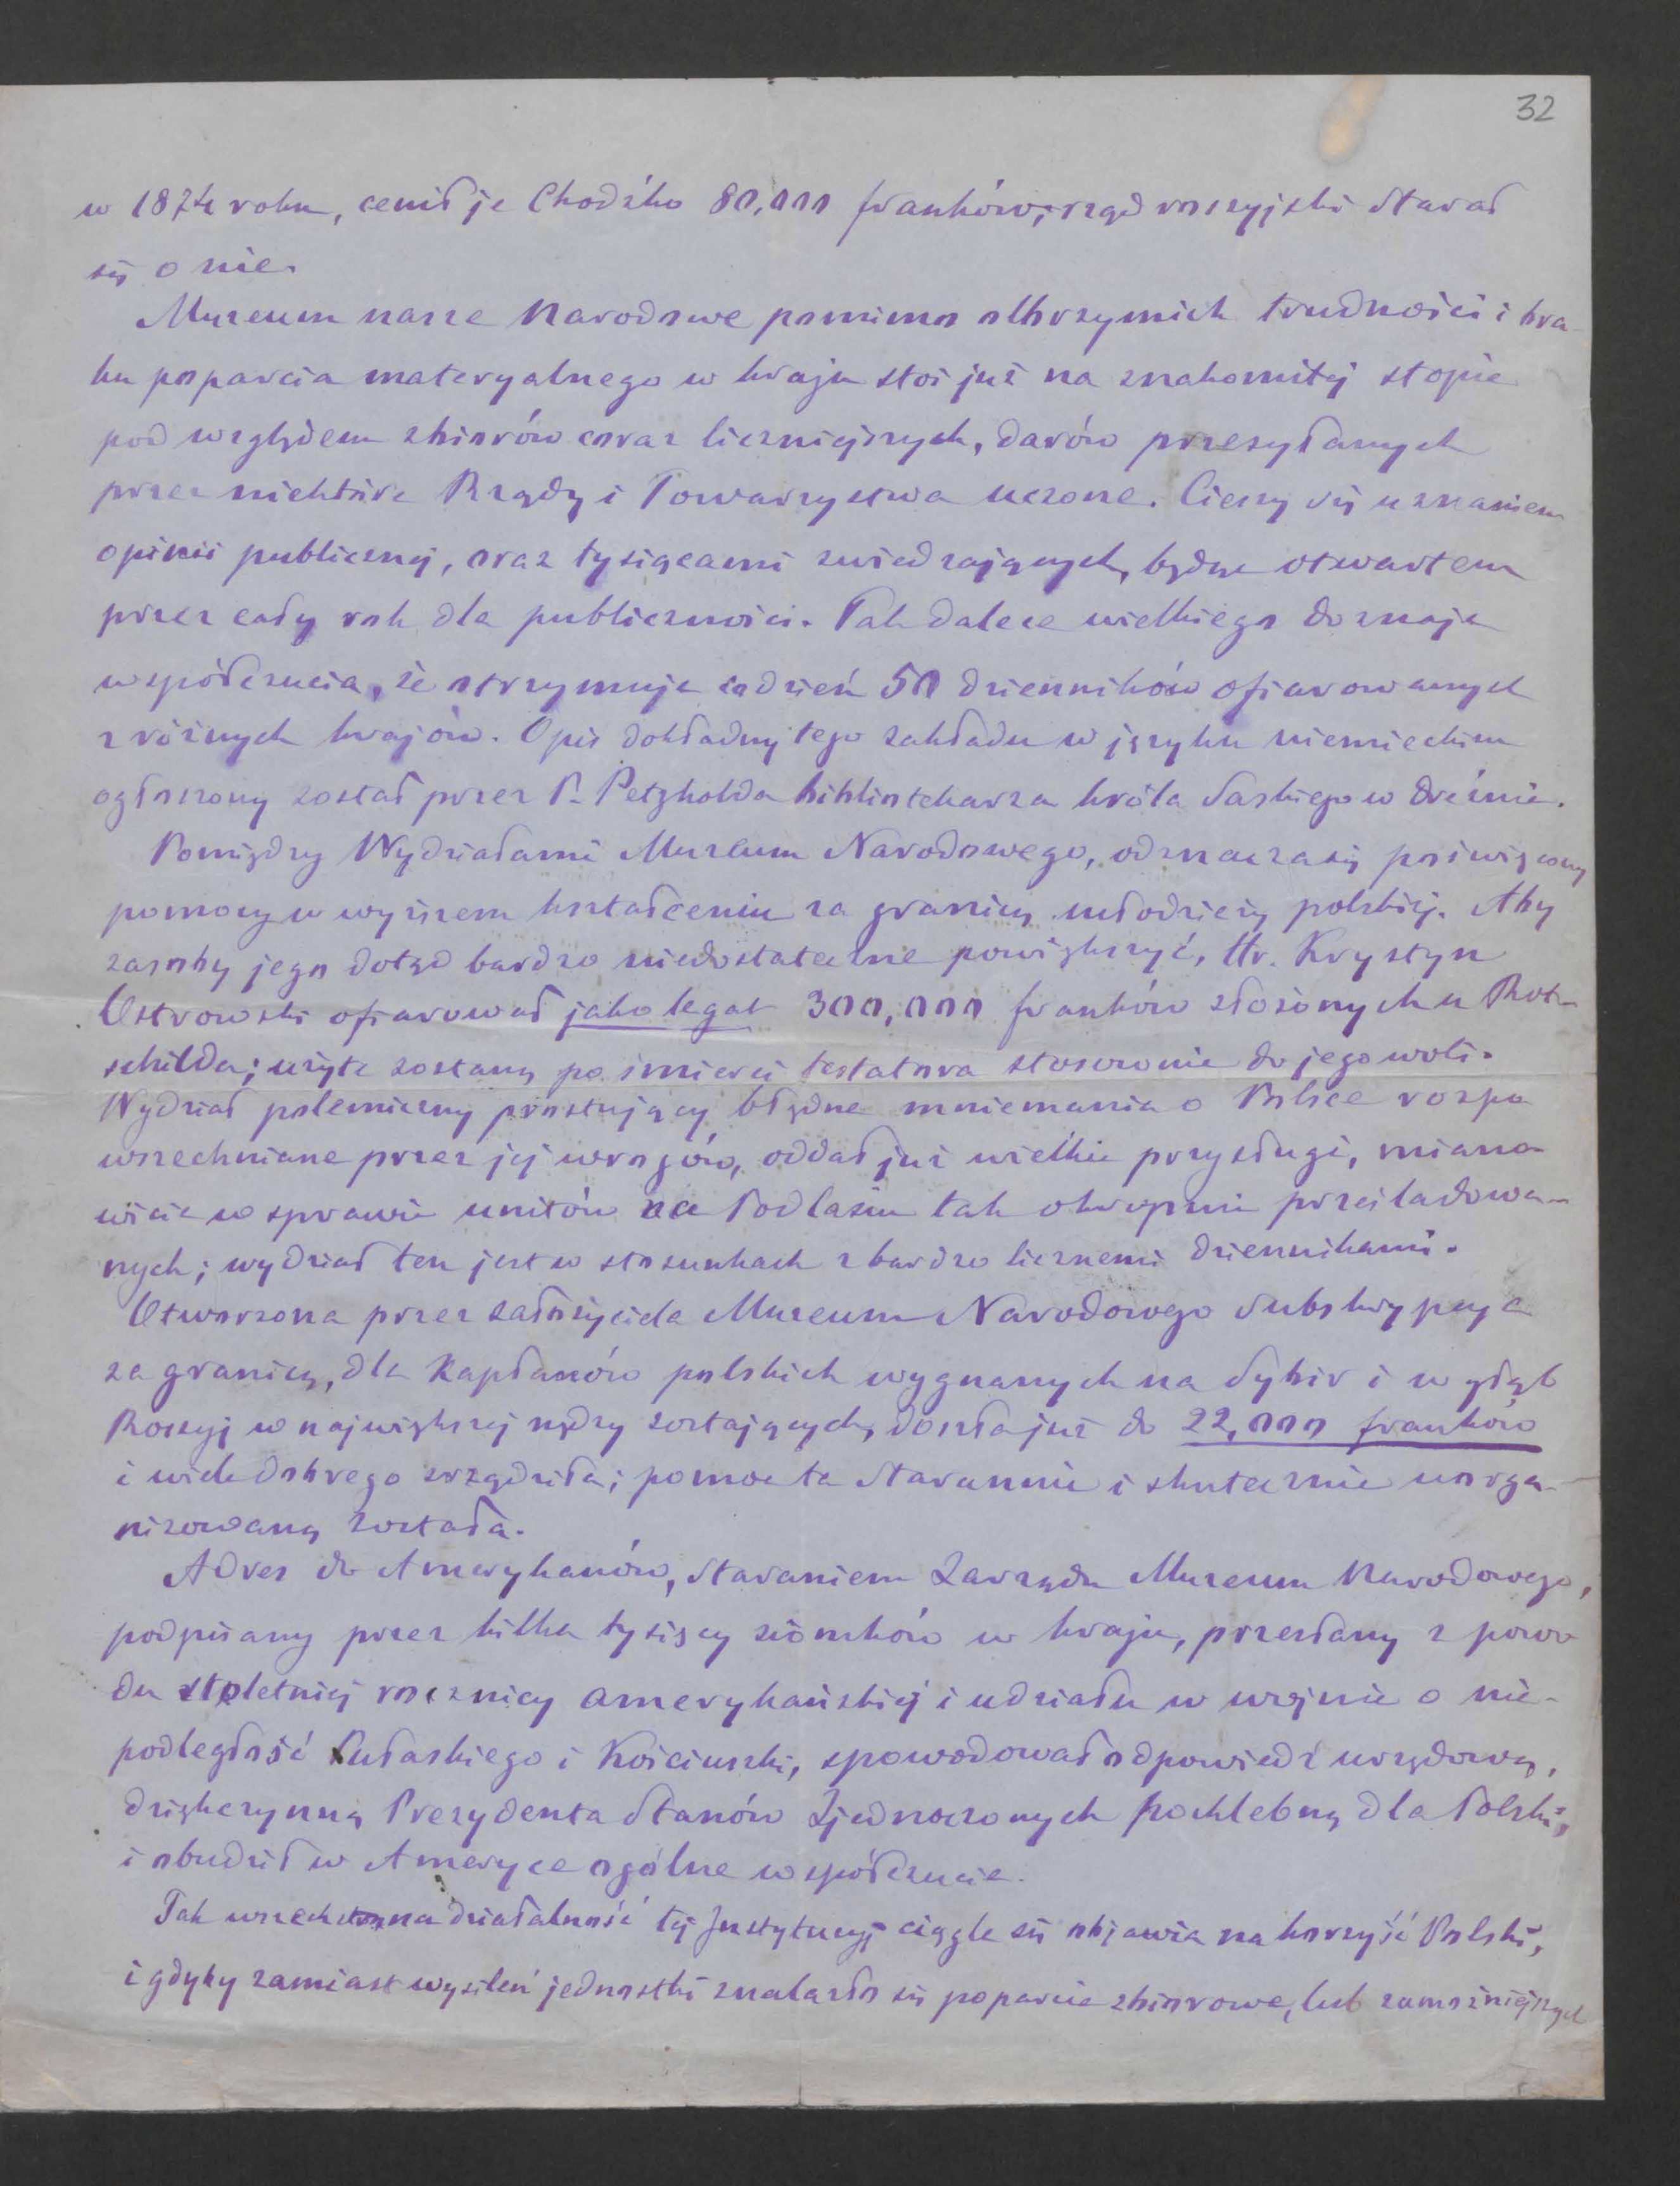 32
w 1874 roku, cenił je Chodźko 80,000 franków; rząd rossyjski starał
się o nie.
Muzeum nasze Narodowe pomimo olbrzymich trudności i bra-
ku poparcia materyalnego w kraju stoi już na znakomitej stopie
pod względem zbiorów coraz liczniejszych, darów przesyłanych
przez niektóre Rządy i Towarzystwa uczone. Cieszy się uznaniem
opinii publicznej, oraz tysiącami zwiedzających, będąc otwartem
przez cały rok dla publiczności. Tak dalece wielkiego doznaje
współczucia, że otrzymuje co dzień 50 dzienników ofiarowanych
z różnych krajów. Opis dokładny tego zakładu w języku niemieckim
ogłoszony został przez P. Petzholda bibliotekarza króla Saskiego w Dreźnie.
Pomiędzy Wydziałami Muzeum Narodowego, odznacza się poświęcony
pomocy w wyższem kształceniu za granicą młodzieży polskiej. Aby
zasoby jego dotąd bardzo niedostateczne powiększyć, Hr. Krystyn
Ostrowski ofiarował jako legat 300,000 franków złożonych u Rot-
schilda; użyte zostaną po śmierci testatora stosownie do jego woli.
Wydział polemiczny prostujący błędne mniemania o Polsce rozpo
wszechniane przez jej wrogów, oddał już wielkie przysługi, miano-
wicie w sprawie unitów na Podlasiu tak okropnie prześladowa-
nych; wydział ten jest w stosunkach z bardzo licznemi dziennikami.
Otworzona przez założyciela Muzeum Narodowego subskrypcya
za granicą, dla Kapłanów polskich wygnanych na Sybir i w głąb
Rossyj w największej nędzy zostających, doszła już do 22,000 franków
i wiele dobrego zrządziła; pomoc ta starannie i skutecznie uorga-
nizowaną została.
Adres do Amerykanów, staraniem Zarządu Muzeum Narodowego,
podpisany przez kilka tysięcy ziomków w kraju, przesłany z powo
du stoletniej rocznicy amerykańskiej i udziału w wojnie o nie-
podległość Pułaskiego i Kościuszki, spowodował odpowiedź urzędową,
dziękczynną Prezydenta Stanów Zjednoczonych pochlebną dla Polski,
i obudził w Ameryce ogólne współczucie.
Tak wszechstronna działalność tej Instytucyj ciągle się objawia na korzyść Polski,
i gdyby zamiast wysileń jednostki znalazło się poparcie zbiorowe, lub zamożniejszych